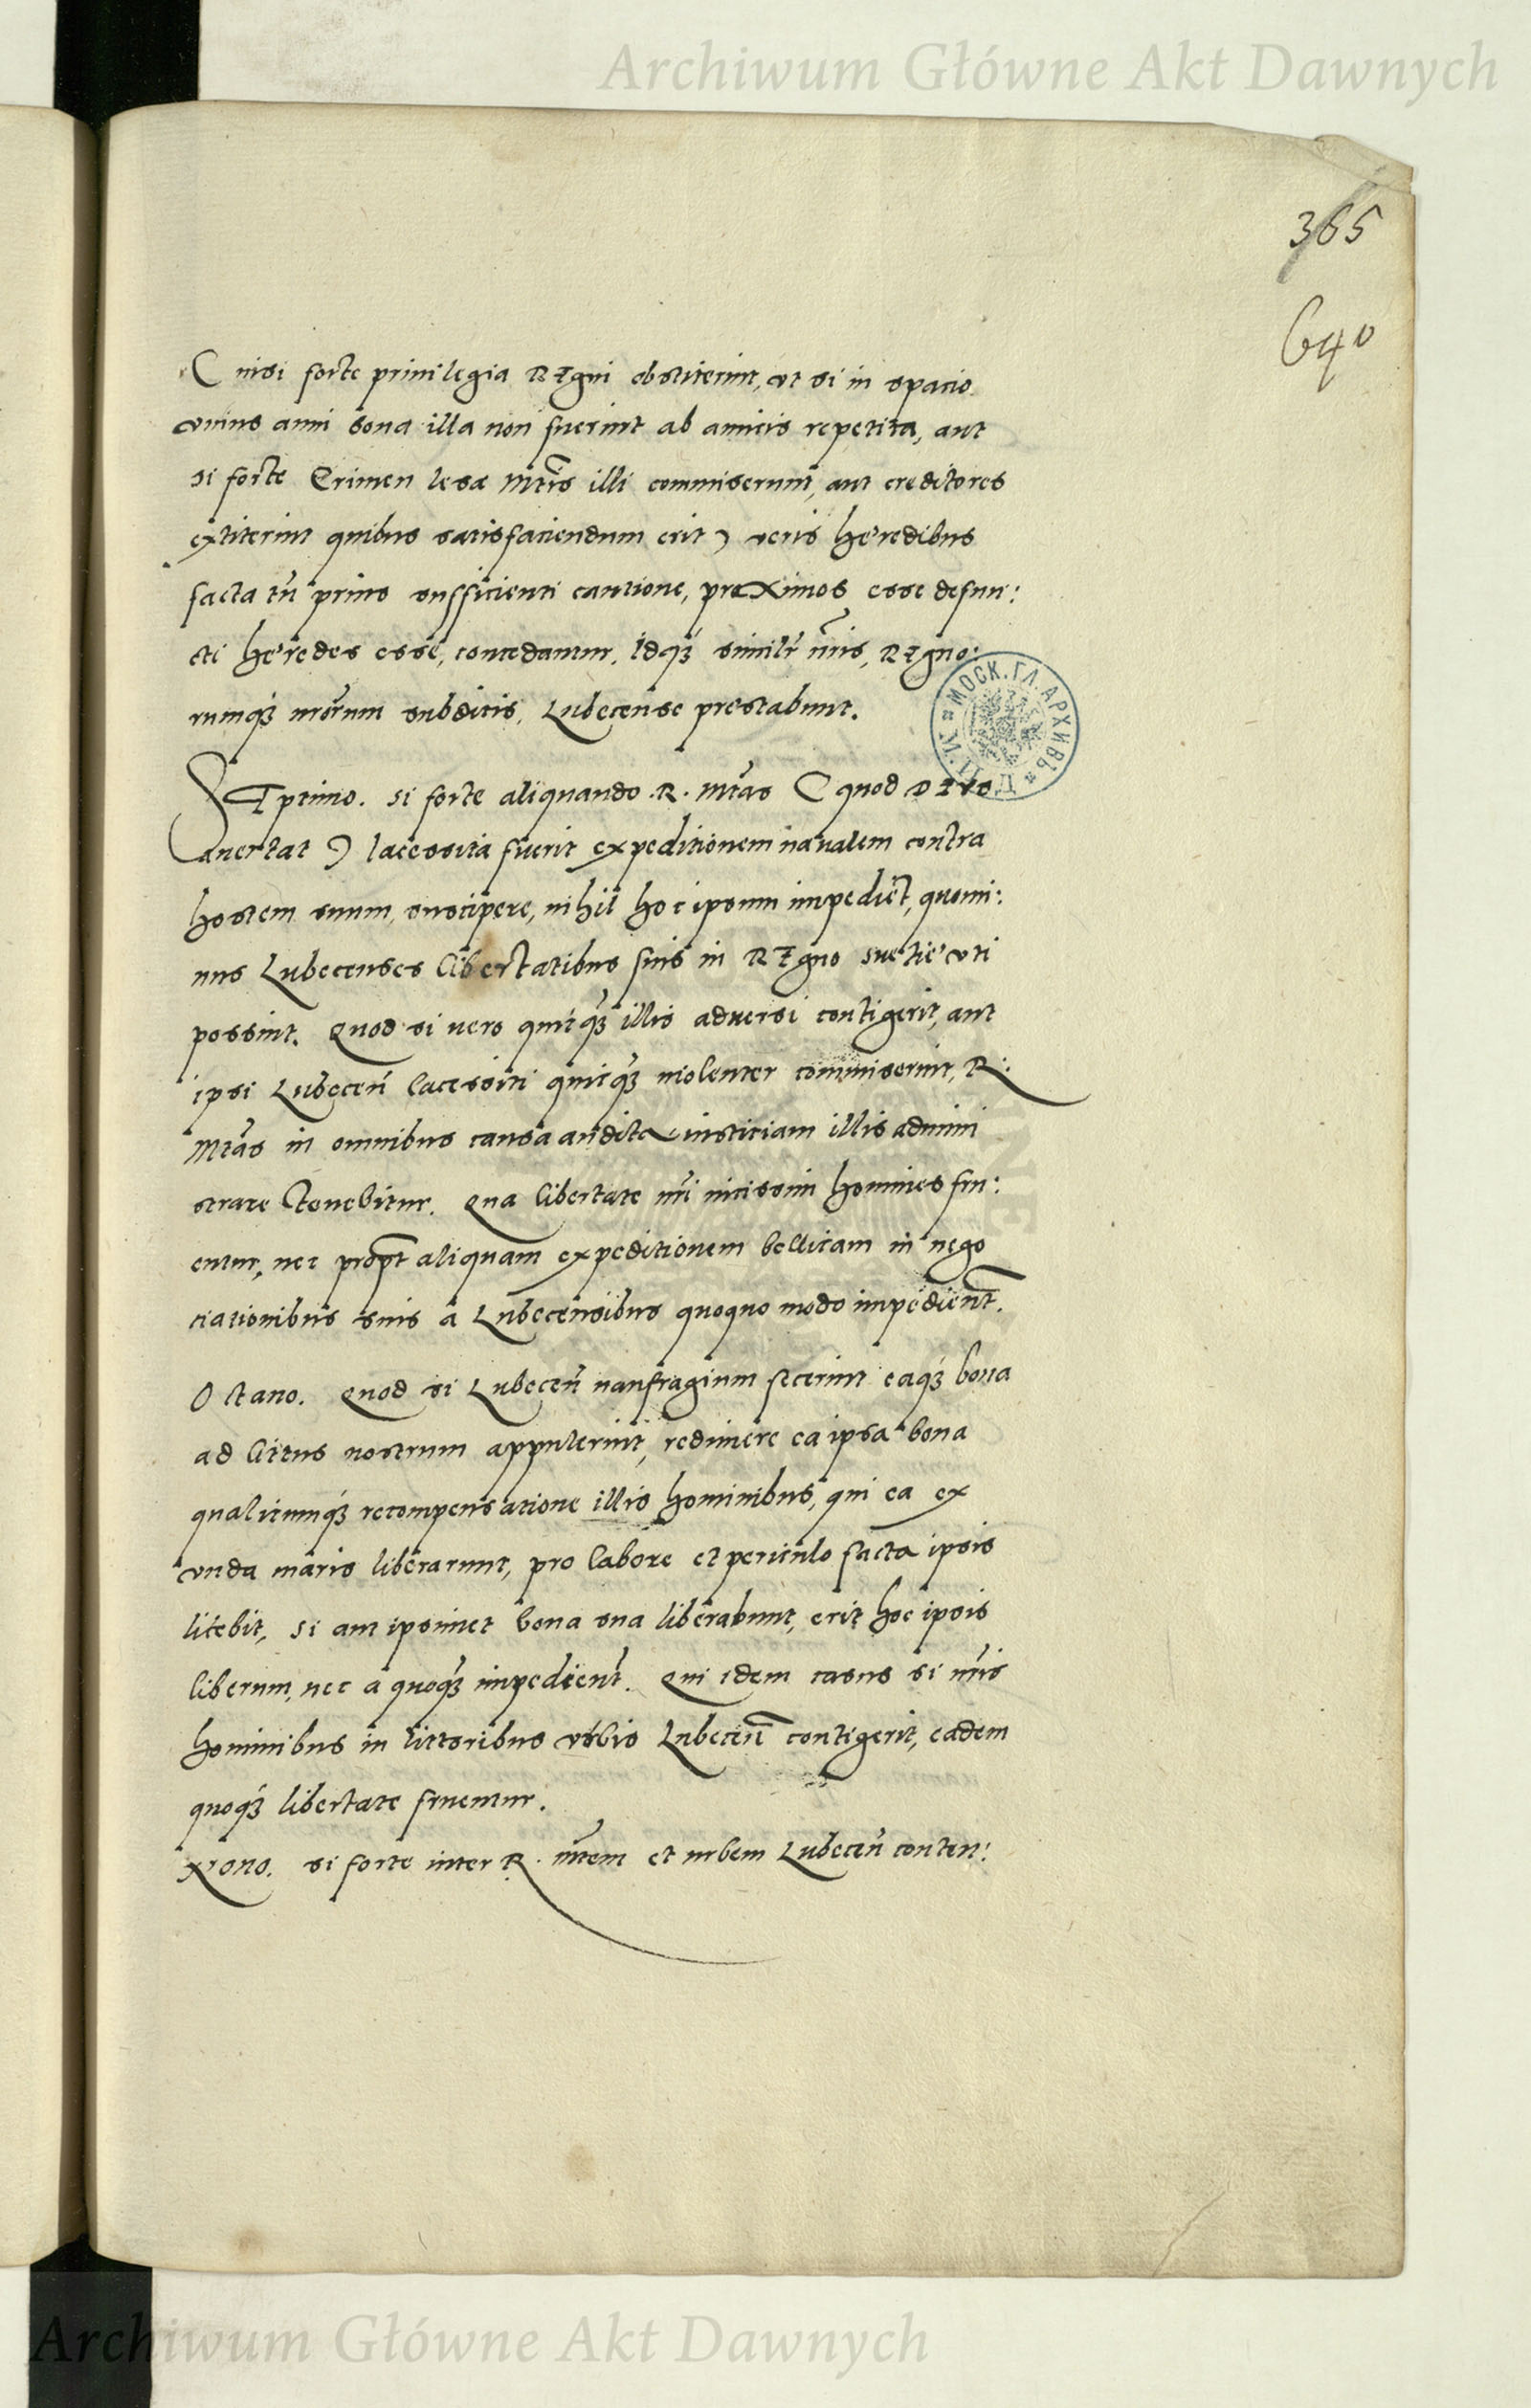 Archiwum Główne Akt Dawnych
365
640
( nisi forte priuilegia REgni obstiterint, vt si in spacio
vnius anni bona illa non fuerint ab amicis repetita, aut
si forte Crimen lesæ Mtis illi commiserunt, aut creditores
extiterint quibus satisfaciendum erit ) veris heredibus
facta tn prius sufficienti cautione, proximos esse defun:
cti heredes esse, concedantur. Idq3 similr nris, REgno:
rumq3 nrorum subditis, Lubecense prestabunt.
SEptimo. Si forte aliquando .R. Mtas ( quod DEVS
auertat ) lacessita fuerit expeditionem naualem contra
hostem suum, suscipere, nihil hoc ipsum impediet, quomi:
nus Lubecenses libertatibus suis in REgno Suetie vti
possint. Quod si vero quicq3 illis aduersi contigerit, aut
ipsi Lubecen lacessiti quicq3 violenter commiserint, R:
Mtas in omnibus causa audita iusticiam illis admini
strare tenebitur. Qua libertate nri vicissim homines fru:
entur, nec propt aliquam expeditionem bellicam in nego
ciationibus suis a Lubecensibus quoquo modo impedient.
Octauo. Quod si Lubecen naufragium fecerint eaq3 bona
ad litus nostrum appulerint, redimere ea ipsa bona
qualicunq3 recompensatione illis hominibus, qui ea ex
vnda maris liberarunt, pro labore et periculo facta ipsis
licebit, Si aut ipsimet bona sua liberabunt, erit hoc ipsis
liberum, nec a quoq3 impedient. Qui idem casus si nris
hominibus in littoribus vrbis Lubecen contigerit, eadem
quoq3 libertate fruentur.
Nono. Si forte inter R. mtem et urbem Lubecen conten:
МОСК. ГЛ. АРХИВЪ
Archiwum Główne Akt Dawnych